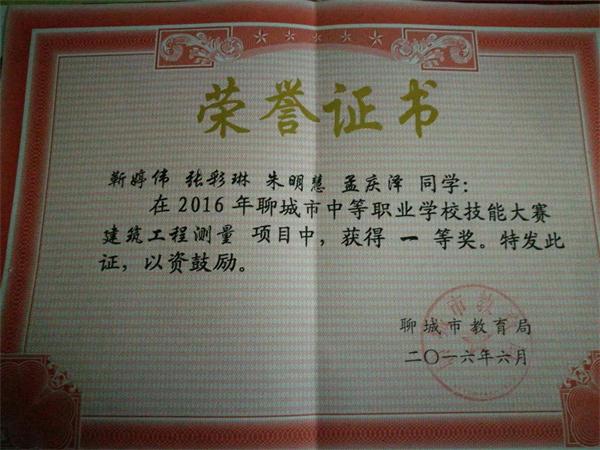 荣誉证书
靳婷伟 张彩琳 朱明慧 孟庆泽 同学:
在2016年聊城市中等职业学校技能大赛
建筑工程测量 项目中,获得 一 等奖。特发此
证,以资鼓励。
聊城市教育局
二〇一六年六月